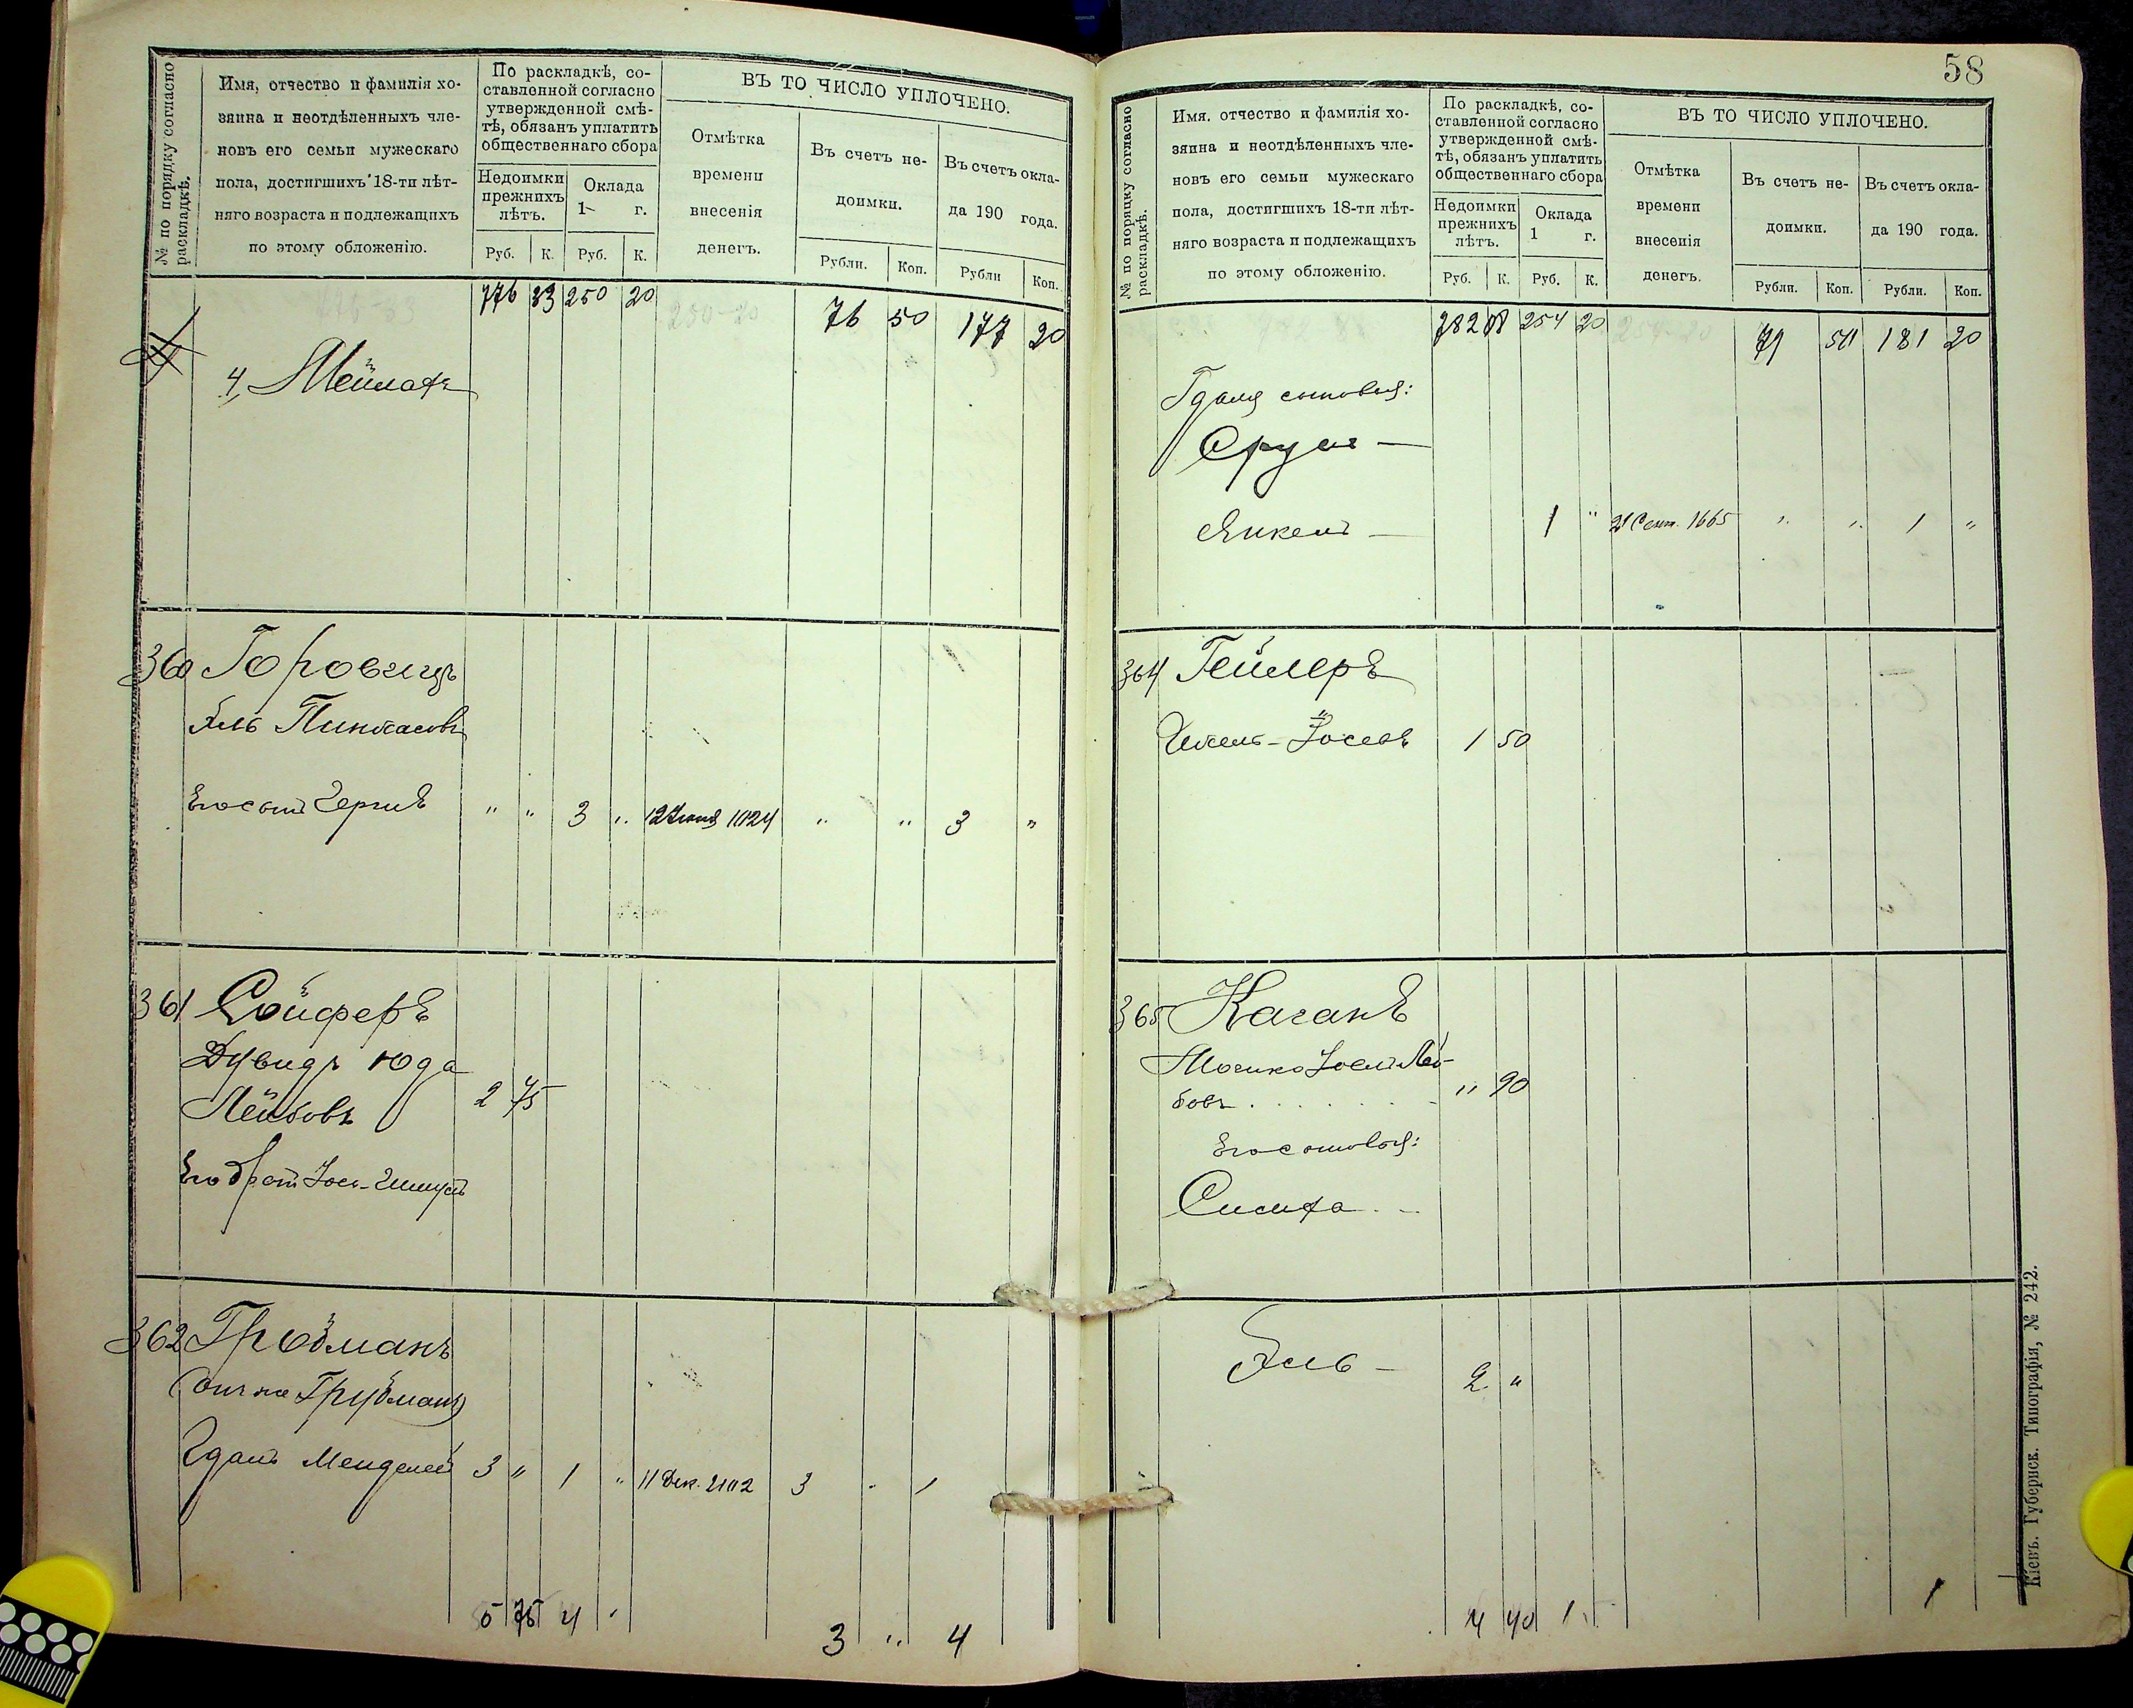 № по порядку согласно раскладкѣ.
Имя, отчество и фамилія хо-
зяина и неотдѣленныхъ чле-
новъ его семьи мужескаго
пола, достигшихъ 18-ти лѣт-
няго возраста и подлежащихъ
по этому обложенію.
По раскладкѣ, со-
ставленной согласно
утвержденной смѣ-
тѣ, обязанъ уплатить
общественнаго сбора
Недоимки прежнихъ лѣтъ.
Оклада 1 г.
Руб. К. Руб. К.
ВЪ ТО ЧИСЛО УПЛОЧЕНО.
Отмѣтка
времени
внесенія
денегъ.
Въ счетъ не-
доимки.
Рубли. Коп.
Въ счетъ окла-
да 190 года.
Рубли Коп.
776 83 250 20 76 50 177 20
4, Мейлахъ
360 Горовицъ
Янль Пинхасовъ
Его сынъ Герши " " 3 " 12 Іюня 1024 " " 3 "
361 Сойферъ
Дувидъ Юда
Лейбовъ 2 75
Его братъ Іось-
362 Гройманъ
(онъ же Груйманъ)
Гдаль Менделев 3 " 1 " 11 Дек. 2102 3 1
5 75 4
3 " 4
58
№ по порядку согласно раскладкѣ.
Имя. отчество и фамилія хо-
зяина и неотдѣленныхъ чле-
новъ его семьи мужескаго
пола, достигшихъ 18-ти лѣт-
няго возраста и подлежащихъ
по этому обложенію.
По раскладкѣ, со-
ставленной согласно
утвержденной смѣ-
тѣ, обязанъ уплатить
общественнаго сбора
Недоимки прежнихъ лѣтъ.
Оклада 1 г.
Руб. К. Руб. К.
ВЪ ТО ЧИСЛО УПЛОЧЕНО.
Отмѣтка
времени
внесенія
денегъ.
Въ счетъ не-
доимки.
Рубли. Коп.
Въ счетъ окла-
да 190 года.
Рубли. Коп.
782 58 254 20 79 50 181 20
Гдаля сыновья:
Сруль —
Янкель — 1 " 21 Сент. 1665 " " 1 "
364 Гейлеръ
Іосевъ 1 50
365 Каганъ
Мошко Іось Лей-
бовъ " 90
Его сыновья:
Симха
2 "
4 40 1
1
Кіевъ. Губернск. Типографія, № 242.